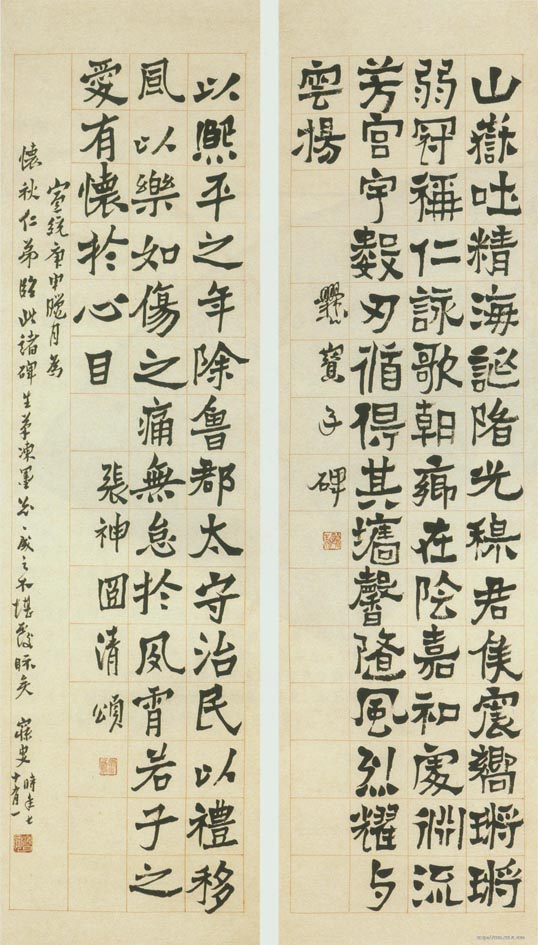 山嶽吐精海誕陼光穆君侯震嚮鏘鏘
弱冠稱仁詠歌朝鄉在陰嘉和處淵流
芳宮宇數刃循得其墻馨隨風烈耀与
雲揚
爨寶子碑
以熙平之年除魯郡太守治民以禮移
風以樂如傷之痛無怠於夙宵若子之
愛有懷於心目
張神冏清頌
宣統庚申臘月為
懷秋仁弟臨此諸碑生筆凍墨成之不堪發眎矣 寐叟
時年七
十有一